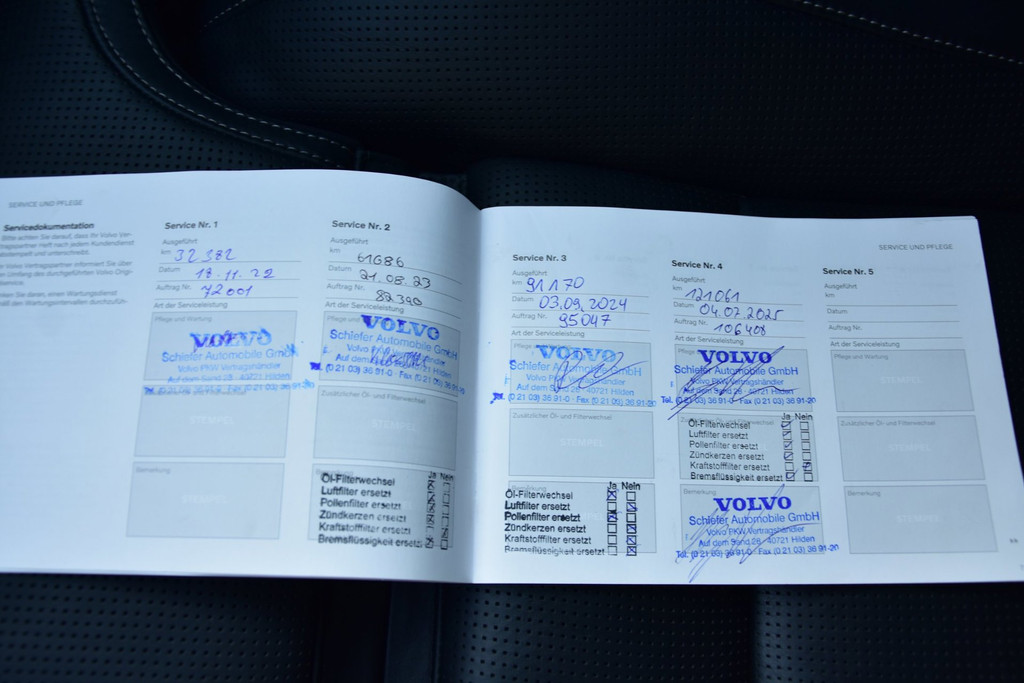 SERVICE UND PFLEGE
Servicedokumentation
Bitte achten Sie darauf, dass Ihr Volvo Ver-
tragspartner Heft nach jedem Kundendienst
abstempelt und unterschreibt.
Ihr Volvo Vertragspartner informiert Sie über
Umfang des durchgeführten Volvo
service.
Sie daran, einen Wartungsdienst
den Wartungsintervallen
Service Nr. 1
Ausgeführt
km 32 382
Datum 18.11.22
Auftrag Nr. 72001
Art der Serviceleistung
Pflege und Wartung
VOLVO
Schiefer Automobile GmbH
Volvo PKW Vertragshändler
Auf dem Sand 28 · 40721 Hilden
Tel. (0 21 03) 36 91-0 · Fax (0 21 03) 36 91-20
Zusätzlicher Öl- und Filterwechsel
STEMPEL
Bemerkung
STEMPEL
Service Nr. 2
Ausgeführt
km 61686
Datum 21.08.23
Auftrag Nr. 82390
Art der Serviceleistung
Pflege und Wartung
VOLVO
Schiefer Automobile GmbH
Volvo PKW Vertragshändler
Auf dem Sand 28 · 40721 Hilden
Tel. (0 21 03) 36 91-0 · Fax (0 21 03) 36 91-20
Zusätzlicher Öl- und Filterwechsel
STEMPEL
Bemerkung
Ja Nein
Öl-Filterwechsel
Luftfilter ersetzt
Pollenfilter ersetzt
Zündkerzen ersetzt
Kraftstofffilter ersetzt
Bremsflüssigkeit ersetzt
Service Nr. 3
Ausgeführt
km 91170
Datum 03.09.2024
Auftrag Nr. 95047
Art der Serviceleistung
VOLVO
Schiefer Automobile GmbH
Volvo PKW Vertragshändler
Auf dem Sand 28 · 40721 Hilden
Tel. (0 21 03) 36 91-0 · Fax (0 21 03) 36 91-20
Zusätzlicher Öl- und Filterwechsel
STEMPEL
Bemerkung
Ja Nein
Öl-Filterwechsel
Luftfilter ersetzt
Pollenfilter ersetzt
Zündkerzen ersetzt
Kraftstofffilter ersetzt
Bremsflüssigkeit ersetzt
SERVICE UND PFLEGE
Service Nr. 4
Ausgeführt
km 121061
Datum 04.07.2025
Auftrag Nr. 106408
Art der Serviceleistung
Pflege
VOLVO
Schiefer Automobile GmbH
Volvo PKW Vertragshändler
Auf dem Sand 28 · 40721 Hilden
Tel. (0 21 03) 36 91-0 · Fax (0 21 03) 36 91-20
Ja Nein
Öl-Filterwechsel
Luftfilter ersetzt
Pollenfilter ersetzt
Zündkerzen ersetzt
Kraftstofffilter ersetzt
Bremsflüssigkeit ersetzt
Bemerkung
VOLVO
Schiefer Automobile GmbH
Volvo PKW Vertragshändler
Auf dem Sand 28 · 40721 Hilden
Tel. (0 21 03) 36 91-0 · Fax (0 21 03) 36 91-20
Service Nr. 5
Ausgeführt
km
Datum
Auftrag Nr.
Art der Serviceleistung
Pflege und Wartung
STEMPEL
Zusätzlicher Öl- und Filterwechsel
STEMPEL
Bemerkung
STEMPEL